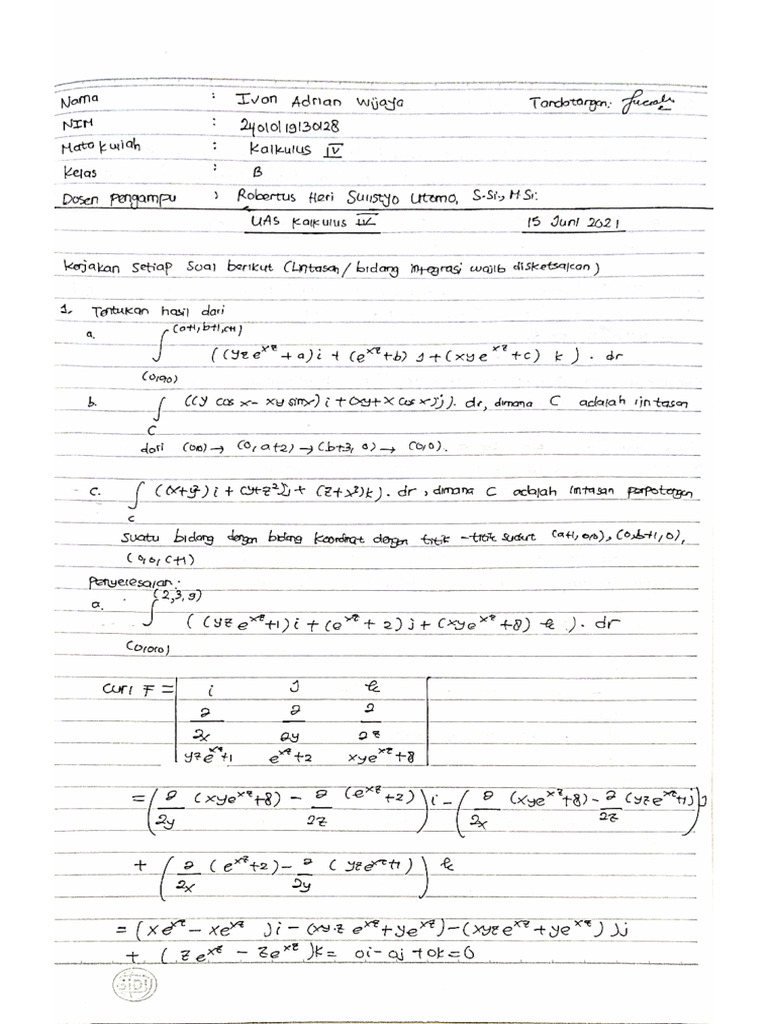 Nama : Ivon Adrian Wijaya Tandatangan:
NIM : 24010119130128
Mata kuliah : Kalkulus IV
Kelas : B
Dosen Pengampu : Robertus Heri Sulistyo Utomo, S.Si, M.Si.
UAS Kalkulus IV 15 Juni 2021
Kerjakan setiap soal berikut (Lintasan / bidang integrasi wajib disketsakan)
1. Tentukan hasil dari
a. ∫_(0,0,0)^(a+1, b+1, c+1) ((yze^xz + a)i + (e^xz + b) j + (xye^xz + c) k). dr
b. ∫_C ((y cos x - xy sin x) i + (xy + x cos x)j). dr, dimana C adalah lintasan
dari (0,0) → (0, a+2) → (b+3, 0) → (0,0).
c. ∫_C ((x+y²) i + (y+z²)j + (z+x²)k). dr, dimana C adalah lintasan perpotongan
suatu bidang dengan bidang koordinat dengan titik-titik sudut (a+1,0,0), (0,b+1,0),
(0,0,c+1)
Penyelesaian:
a. ∫_(0,0,0)^(2,3,9) ((yze^xz + 1)i + (e^xz + 2)j + (xye^xz + 8) k). dr
curl F = | i j k
∂/∂x ∂/∂y ∂/∂z
yze^xz+1 e^xz+2 xye^xz+8 |
= (∂/∂y (xye^xz+8) - ∂/∂z (e^xz+2)) i - (∂/∂x (xye^xz+8) - ∂/∂z (yze^xz+1)) j
+ (∂/∂x (e^xz+2) - ∂/∂y (yze^xz+1)) k
= (xe^xz - xe^xz)i - (xyz e^xz + ye^xz) - (xyze^xz + ye^xz))j
+ (ze^xz - ze^xz)k = 0i - 0j + 0k = 0
SIDU